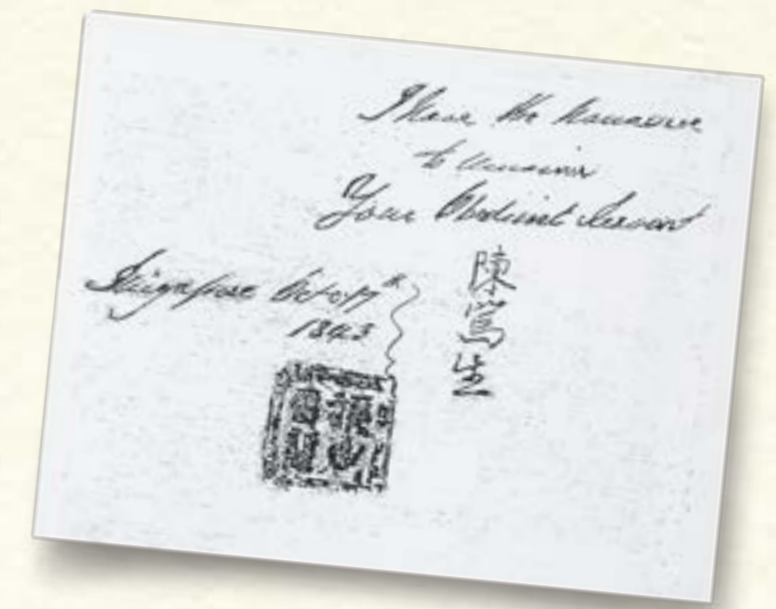 I have the honour
to remain
Your Obedient Servant
陳篤生
Singapore Oct 17th
1843